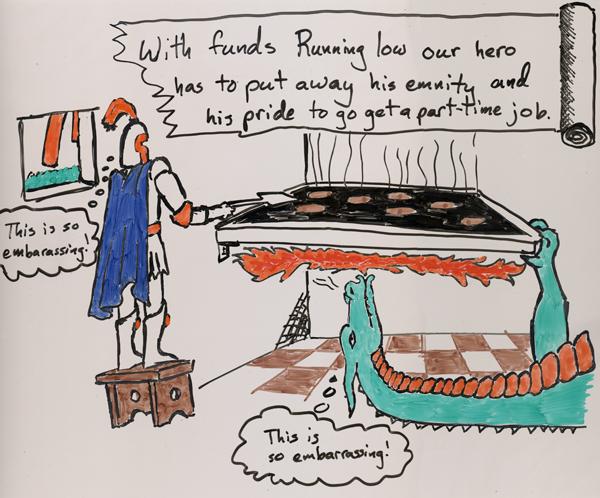 With funds Running low our hero
has to put away his emnity and
his pride to go get a part-time job.
This is so
embarassing!
This is
so embarrassing!